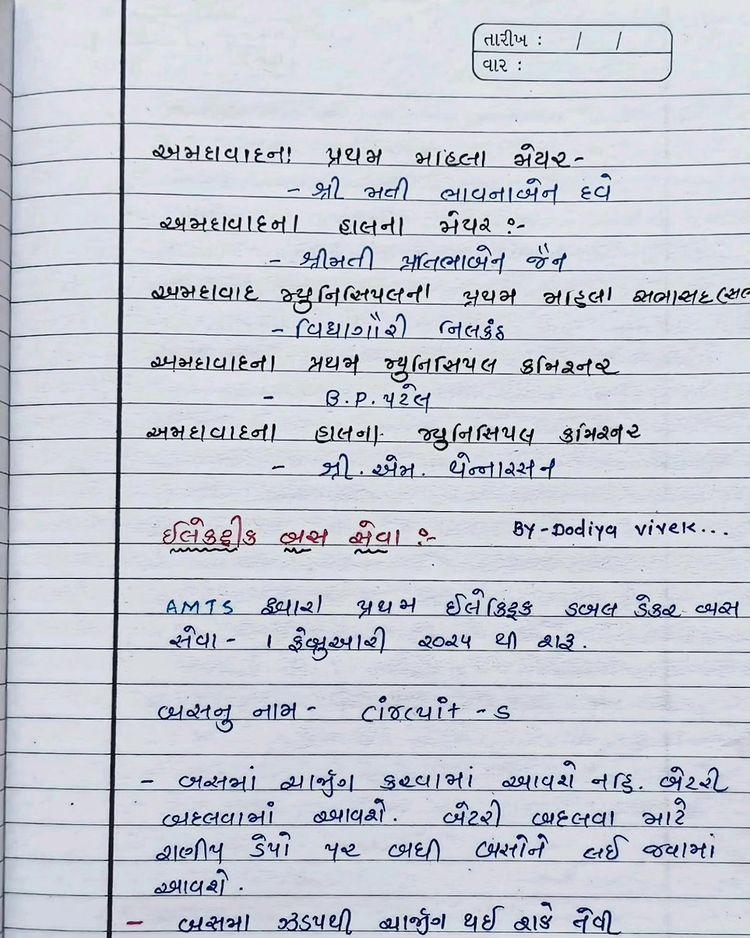 તારીખ : / /
વાર :
અમદાવાદના પ્રથમ મહિલા મેયર-
- શ્રી મતી ભાવનાબેન દવે
અમદાવાદના હાલના મેયર :-
- શ્રીમતી પ્રતિભાબેન જૈન
અમદાવાદ મ્યુનિસિપલના પ્રથમ મહિલા સભાસદ
- વિદ્યાગૌરી નિલકંઠ
અમદાવાદના પ્રથમ મ્યુનિસિપલ કમિશ્નર
- B.P. પટેલ
અમદાવાદના હાલના મ્યુનિસિપલ કમિશ્નર
- શ્રી. એમ. થેન્નારસન
ઈલેકટ્રીક બસ સેવા :-
By-Dodiya vivek...
AMTS દ્વારા પ્રથમ ઈલેકિટ્રક ડબલ ડેકર બસ
સેવા - 1 ફેબ્રુઆરી ૨૦૨૫ થી શરૂ.
બસનુ નામ -
- બસમાં ચાર્જીંગ કરવામાં આવશે નહિ. બેટરી
બદલવામાં આવશે. બેટરી બદલવા માટે
રાણીપ ડેપો પર બધી બસોને લઈ જવામાં
આવશે.
- બસમા ઝડપથી ચાર્જીંગ થઈ શકે તેવી